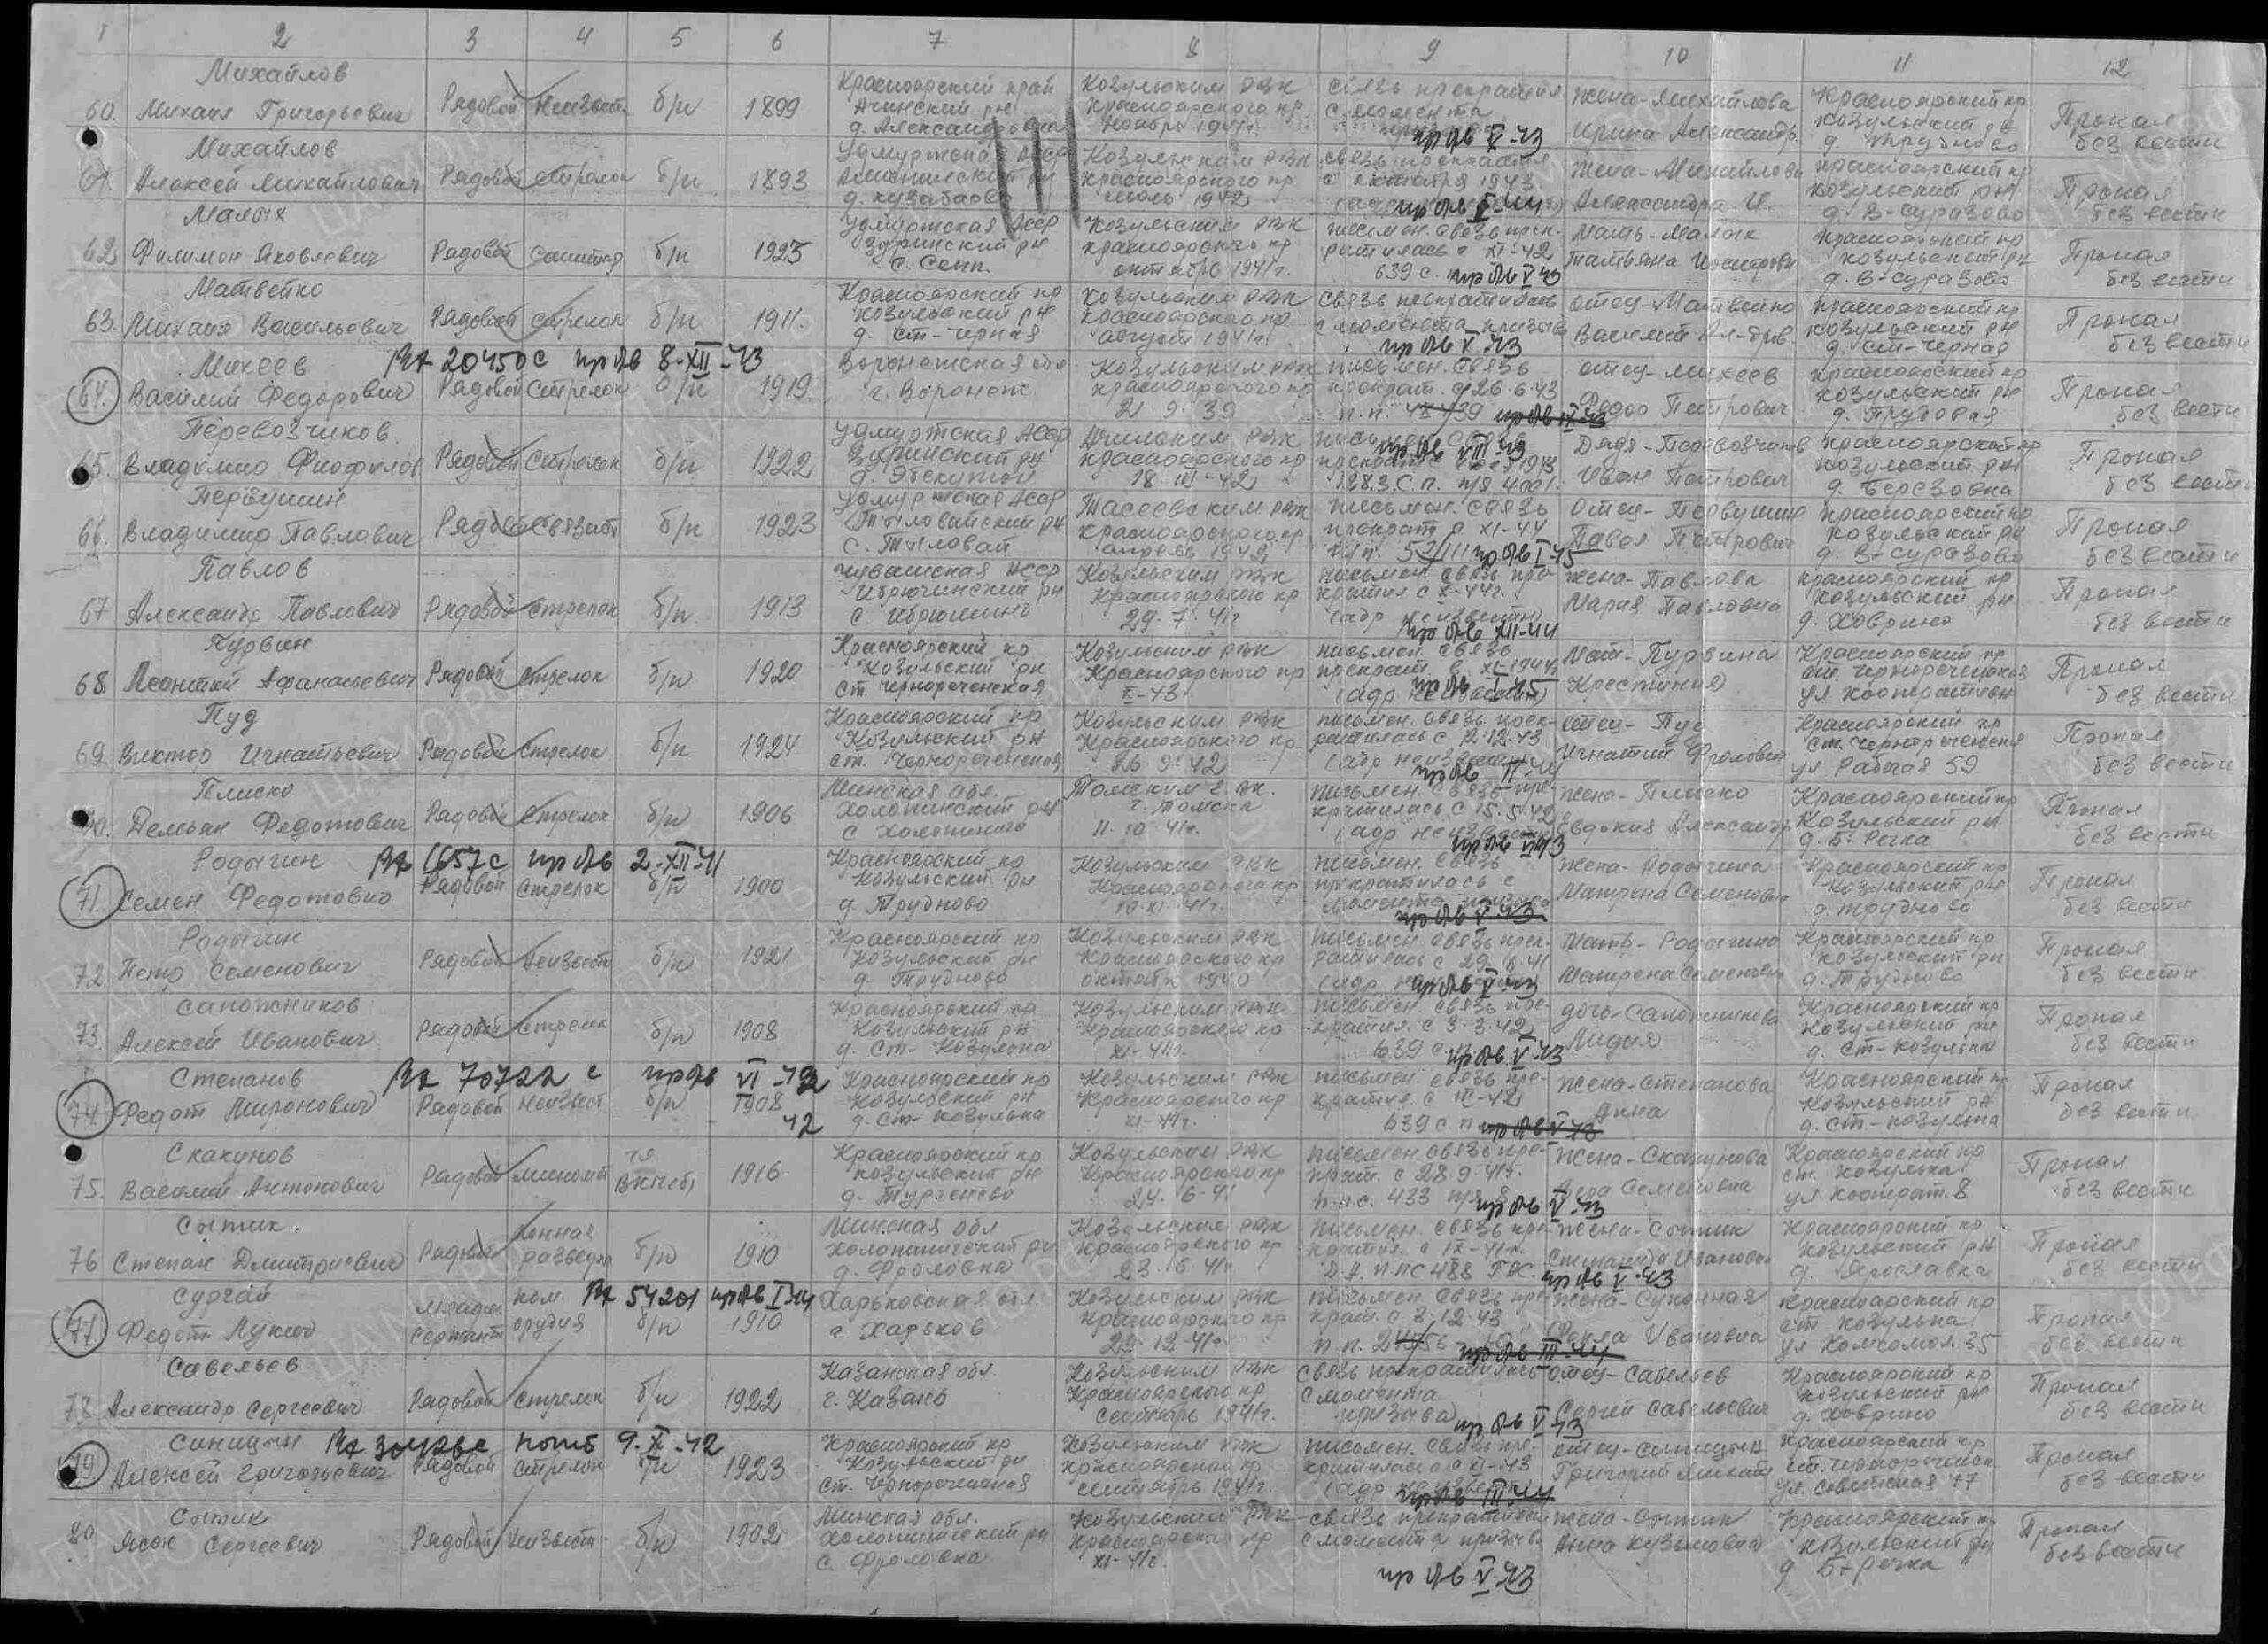 1 2 3 4 5 6 7 8 9 10 11 12
Михайлов Красноярский край Козульским РВК связь прекратил Жена-Михайлова Красноярский кр
60. Михаил Григорьевич Рядовой Неизвест б/п 1899 Ачинский рн Красноярского кр с момента Козульский рн Пропал
д. Александровка Ноября 1941г. пр бв V-43 Ирина Александр. д. Трудново без вести
Михайлов Удмуртская АССР Козульским РВК связь прекратил Жена-Михайлова Красноярский кр
61. Алексей Михайлович Рядовой стрелок б/п 1893 рн Красноярского кр с октября 1943 Козульский рн Пропал
д. июль 1942 пр бв Александра И. д. В-Суразово без вести
Малых Удмуртская АССР Козульским РВК письмен. связь прек- Мать-Малых Красноярский кр
62 Филимон Яковлевич Рядовой б/п 1923 Зуринский рн Красноярского кр ратилась с XI-42 Татьяна Козульский рн Пропал
с. Сепп. октября 1941г. 639 с. пр бв V 43 д. В-Суразово без вести
Матвейко Красноярский кр Козульским РВК связь прекратилась отец-Матвейко Красноярский кр
63. Михаил Васильевич Рядовой стрелок б/п 1911. Козульский рн Красноярского кр с момента призыва Василий Козульский рн Пропал
д. Ст-Черная август 1941г. пр бв V-43 д. Ст-Черная без вести
Михеев Вх 20450с пр бв 8-XII-43 Воронежская обл Козульским РВК письмен. связь отец-Михеев Красноярский кр
64. Василий Федорович Рядовой Стрелок б/п 1919 г. Воронеж Красноярского кр прекрат. с 26.6.43 Федор Петрович Козульский рн Пропал
2 9. 39 п.п. д. Трудовая без вести
Перевозчиков Удмуртская АССР Ачинским РВК пр бв VIII-43 Дядя-Перевозчиков Красноярский кр
65. Владимир Рядовой Стрелок б/п 1922 Зуринский рн Красноярского кр Иван Петрович Козульский рн Пропал
18-III-42 128.З.С.П. п/я 4001. д. Березовка без вести
Первушин Удмуртская АССР Тасеевским РВК письмен. связь Отец-Первушин Красноярский кр
66. Владимир Павлович Рядовой связист б/п 1923 Тыловайский рн Красноярского кр прекрат с XI-44 Павел Петрович Козульский рн Пропал
с. Тыловай апрель 1942 пр бв I-45 д. В-Суразово без вести
Павлов Чувашская АССР Козульским РВК письмен. связь пре- Жена-Павлова Красноярский кр
67 Александр Павлович Рядовой стрелок б/п 1913 рн Красноярского кр кратил с X-44г. Мария Павловна Козульский рн Пропал
29. 7. 41г (адр неизвестен) пр бв XII-44 д. Ховрино без вести
Пурвин Красноярский кр Козульским РВК письмен. связь Мать-Пурвина Красноярский кр
68. Леонтий Афанасьевич Рядовой стрелок б/п 1920 Козульский рн Красноярского кр прекрат. с XI-1944 Крестиния ст. Чернореченская Пропал
ст. Чернореченская II-43 (адр неизвестен) пр бв I-45 ул Кооперативн без вести
Пуд Красноярский кр Козульским РВК письмен. связь прек- отец-Пуд Красноярский кр
69. Виктор Игнатьевич Рядовой Стрелок б/п 1924 Козульский рн Красноярского кр ратилась с 12.12.43 Игнатий Фролович ст. Чернореченская Пропал
ст. Чернореченская 26 9. 42 (адр неизвестен) ул Рабочая 59 без вести
Плиско Минская обл. Томским г.вк. письмен. связь пре- Жена-Плиско Красноярский кр
70. Демьян Федотович Рядовой Стрелок б/п 1906 Холопинский рн г. Томска кратилась с 15.5.42 Евдокия Александр Козульский рн Пропал
11. 10 41г. (адр неизвестен) д. Б-Речка без вести
Родыгин Вх 1657с пр бв 2-XII-41 Красноярский кр Козульским РВК письмен. связь Жена-Родыгина Красноярский кр
71. Семен Федотович Рядовой Стрелок б/п 1900 Козульский рн Красноярского кр прекратилась с Матрена Семеновна Козульский рн Пропал
д. Трудново 10-XI-41г. момента призыва пр бв V-43 д. Трудново без вести
Родыгин Красноярский кр Козульским РВК письмен. связь прек- Мать-Родыгина Красноярский кр
72. Петр Семенович Рядовой Неизвест б/п 1921 Козульский рн Красноярского кр ратилась с 29.6.41 Матрена Семеновна Козульский рн Пропал
д. Трудново октябрь 1940 пр бв V-43 д. Трудново без вести
Сапожников Красноярский кр Козульским РВК письмен. связь пре- дочь-Сапожникова Красноярский кр
73. Алексей Иванович Рядовой Стрелок б/п 1908 Козульский рн Красноярского кр кратил. с 3-3-42 Лидия Козульский рн Пропал
д. Ст-Козулька XI-41г. 639 с. пр бв V-43 д. Ст-Козулька без вести
Степанов Вх 70722 с пр бв VI-42 Красноярский кр Козульским РВК письмен. связь пре- Жена-Степанова Красноярский кр
74. Федот Миронович Рядовой Неизвест б/п 1908 Козульский рн Красноярского кр кратил. с III-42 Анна Козульский рн Пропал
42 д. Ст-Козулька XI-41г. 639 с п пр бв V-43 д. Ст-Козулька без вести
Скакунов Красноярский кр Козульским РВК письмен. связь пре- Жена-Скакунова Красноярский кр
75. Василий Антонович Рядовой миномет чл ВКП(б) 1916 Козульский рн Красноярского кр крат. с 28.9-41г. Вера Семеновна ст. Козулька Пропал
д. Тургенево 24. 6-41 п.п.с. 433 п/я 8 пр бв V-43 ул Кооперат. 8 без вести
Сытик Конная Минская обл Козульским РВК письмен. связь пре- Жена-Сытик Красноярский кр
76 Степан Дмитриевич Рядовой разведка б/п 1910 Холопиничский рн Красноярского кр кратил. с IX-41г. Степанида Ивановна Козульский рн Пропал
д. Фроловка 23. 6 41г. пр бв V-43 д. Ярославка без вести
Сургай Младш. ком. Вх 54201 пр бв I-44 Харьковская обл. Козульским РВК письмен. связь пре- Жена- Красноярский кр
77. Федот Лукич сержант орудия б/п 1910 г. Харьков Красноярского кр крат. с 3-12-43 Фекла Ивановна ст Козулька Пропал
29-12-41г п п. пр бв III-44 ул Комсомол. 35 без вести
Савельев Казанская обл. Козульским РВК связь прекратилась отец-Савельев Красноярский кр
78. Александр Сергеевич Рядовой стрелок б/п 1922 г. Казань Красноярского кр с момента Сергей Савельевич Козульский рн Пропал
сентябрь 1941г. призыва пр бв V-43 д. Ховрино без вести
Синицын Вх 30428с погиб 9-X-42 Красноярский кр Козульским РВК письмен. связь пре- отец-Синицын Красноярский кр
79. Алексей Григорьевич Рядовой стрелок б/п 1923 Козульский рн Красноярского кр кратилась с XI-43 Григорий Михайл ст. Чернореченская Пропал
ст. Чернореченская сентябрь 1941г. (адр неизвестен) пр бв III-44 ул. Советская 77 без вести
Сытик Минская обл. Козульский РВК связь прекратилась Жена-Сытик Красноярский кр
80 Ясон Сергеевич Рядовой Неизвест. б/п 1902 Холопиничский рн Красноярского кр с момента призыва Анна Кузьмовна Козульский рн Пропал
с. Фроловка XI-41г. пр бв V-43 д Б-Речка без вести